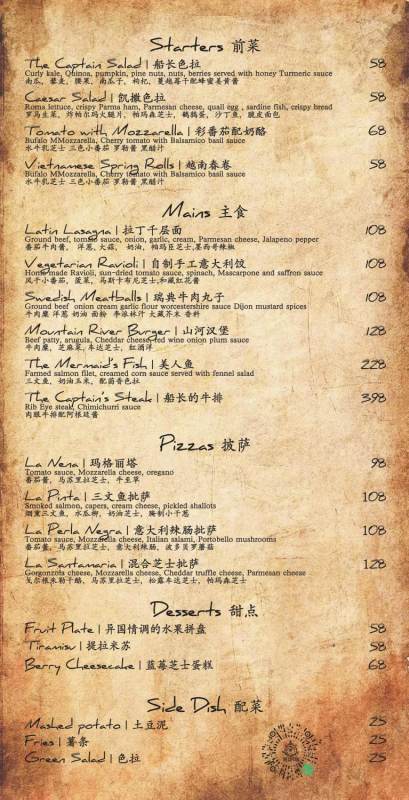 Starters 前菜
The Captain Salad | 船长色拉 58
Curly kale, Quinoa, pumpkin, pine nuts, nuts, berries served with honey Turmeric sauce
南瓜, 藜麦, 腰果, 南瓜子, 枸杞, 蔓越莓干配蜂蜜姜黄酱
Caesar Salad | 凯撒色拉 58
Roma lettuce, crispy Parma ham, Parmesan cheese, quail egg , sardine fish, crispy bread
罗马生菜, 炸帕尔玛火腿片, 帕玛森芝士, 鹌鹑蛋, 沙丁鱼, 脆皮面包
Tomato with Mozzarella | 彩番茄配奶酪 68
Bufalo MMozzarella, Cherry tomato with Balsamico basil sauce
水牛乳芝士 三色小番茄 罗勒酱 黑醋汁
Vietnamese Spring Rolls | 越南春卷 58
Bufalo MMozzarella, Cherry tomato with Balsamico basil sauce
水牛乳芝士 三色小番茄 罗勒酱 黑醋汁
Mains 主食
Latin Lasagna | 拉丁千层面 108
Ground beef, tomato sauce, onion, garlic, cream, Parmesan cheese, Jalapeno pepper
番茄牛肉酱, 洋葱, 大蒜, 奶油, 帕玛臣芝士, 墨西哥辣椒
Vegetarian Ravioli | 自制手工意大利饺 108
Homemade Ravioli, sun-dried tomato sauce, spinach, Mascarpone and saffron sauce
风干小番茄, 菠菜, 马斯卡布尼芝士,和藏红花酱
Swedish Meatballs | 瑞典牛肉丸子 108
Ground beef onion cream garlic flour worcestershire sauce Dijon mustard spices
牛肉糜 洋葱 奶油 面粉 李派林汁 大藏芥末 香料
Mountain River Burger | 山河汉堡 128
Beef patty, arugula, Cheddar cheese, red wine onion plum sauce
牛肉糜, 芝麻菜, 车达芝士, 红酒洋
The Mermaid's Fish | 美人鱼 228
Farmed salmon filet, creamed corn sauce served with fennel salad
三文鱼, 奶油玉米, 配茴香色拉
The Captain's Steak | 船长的牛排 398
Rib Eye steak, Chimichurri sauce
肉眼牛排配阿根廷酱
Pizzas 披萨
La Nena | 玛格丽塔 98
Tomato sauce, Mozzarella cheese, oregano
番茄酱, 马苏里拉芝士, 牛至草
La Pinta | 三文鱼批萨 108
Smoked salmon, capers, cream cheese, pickled shallots
烟熏三文鱼, 水瓜柳, 奶油芝士, 腌制小干葱
La Perla Negra | 意大利辣肠批萨 108
Tomato sauce, Mozzarella cheese, Italian salami, Portobello mushrooms
番茄酱, 马苏里拉芝士, 意大利辣肠, 波多贝罗蘑菇
La Santamaria | 混合芝士批萨 128
Gorgonzola cheese, Mozzarella cheese, Cheddar truffle cheese, Parmesan cheese
戈尔根朱勒干酪, 马苏里拉芝士, 松露车达芝士, 帕玛森芝士
Desserts 甜点
Fruit Plate | 异国情调的水果拼盘 58
Tiramisu | 提拉米苏 58
Berry Cheesecake | 蓝莓芝士蛋糕 68
Side Dish 配菜
Mashed potato | 土豆泥 25
Fries | 薯条 25
Green Salad | 色拉 25